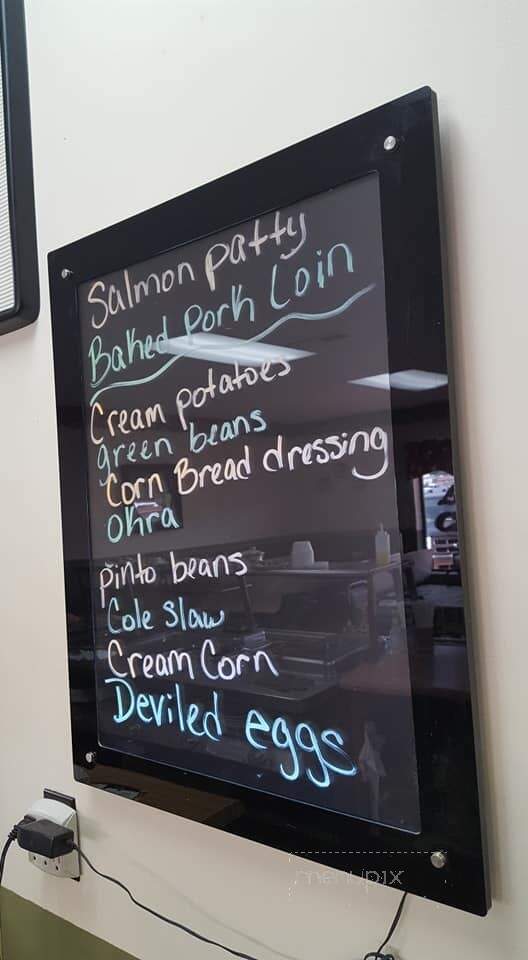 Salmon patty
Baked Pork Loin
Cream potatoes
green beans
Corn Bread dressing
Okra
pinto beans
Cole slaw
Cream Corn
Deviled eggs
menupix